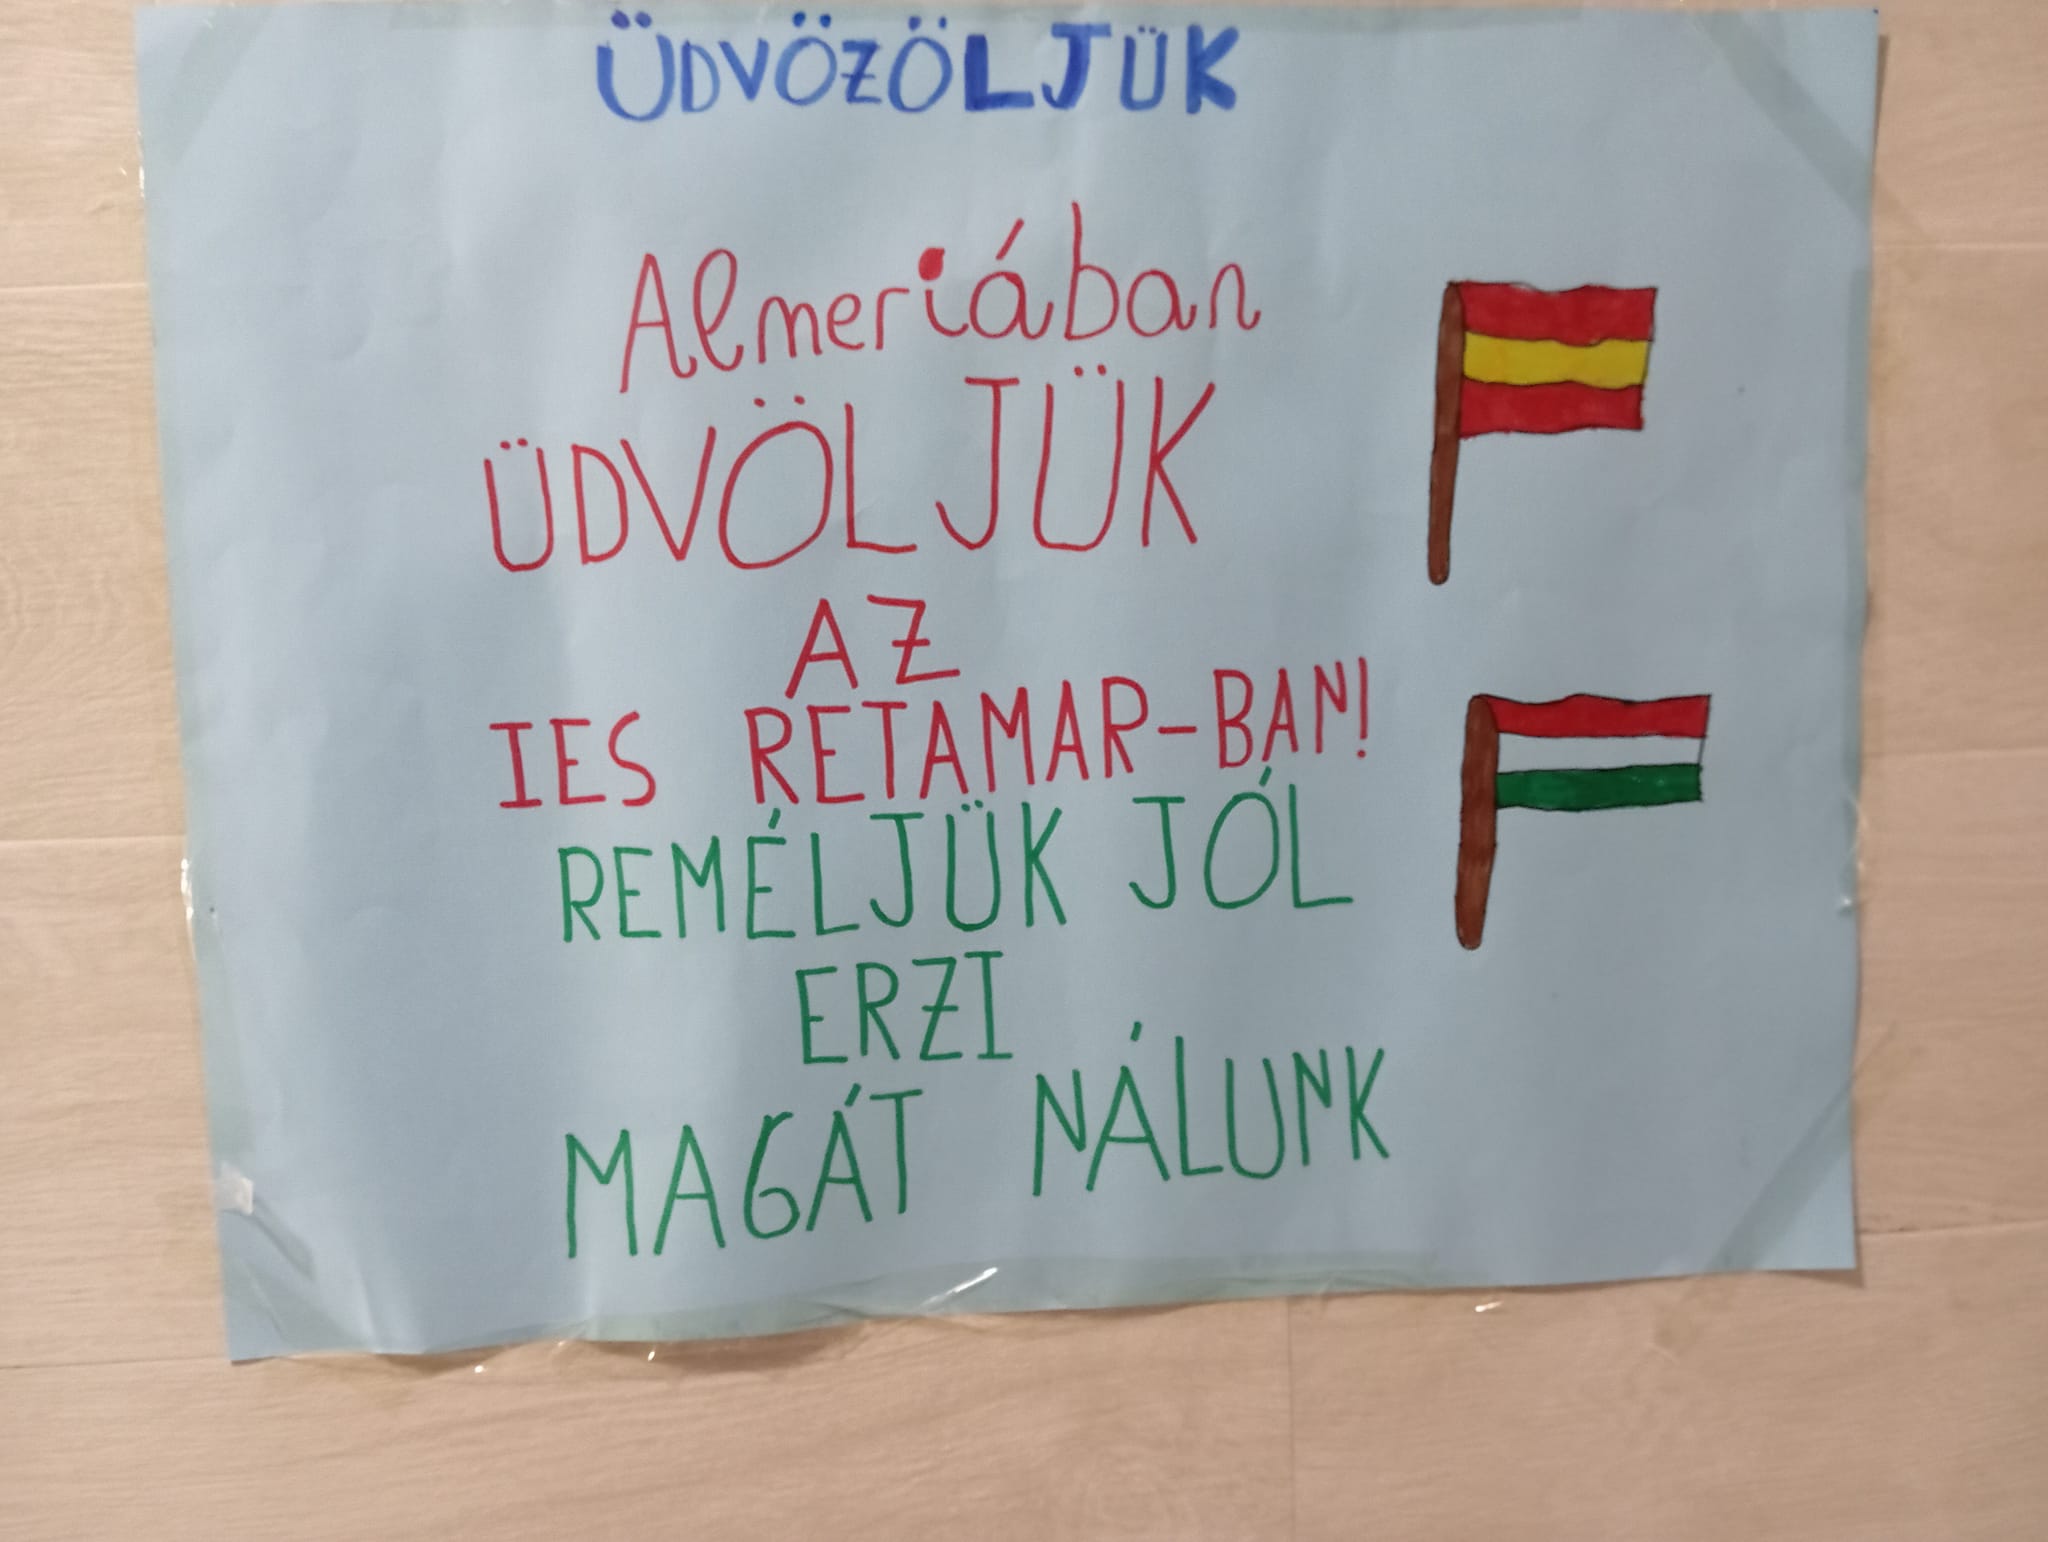 ÜDVÖZÖLJÜK
Almeriában
ÜDVÖLJÜK
AZ
IES RETAMAR-BAN!
REMÉLJÜK JÓL
ERZI
MAGÁT NÁLUNK